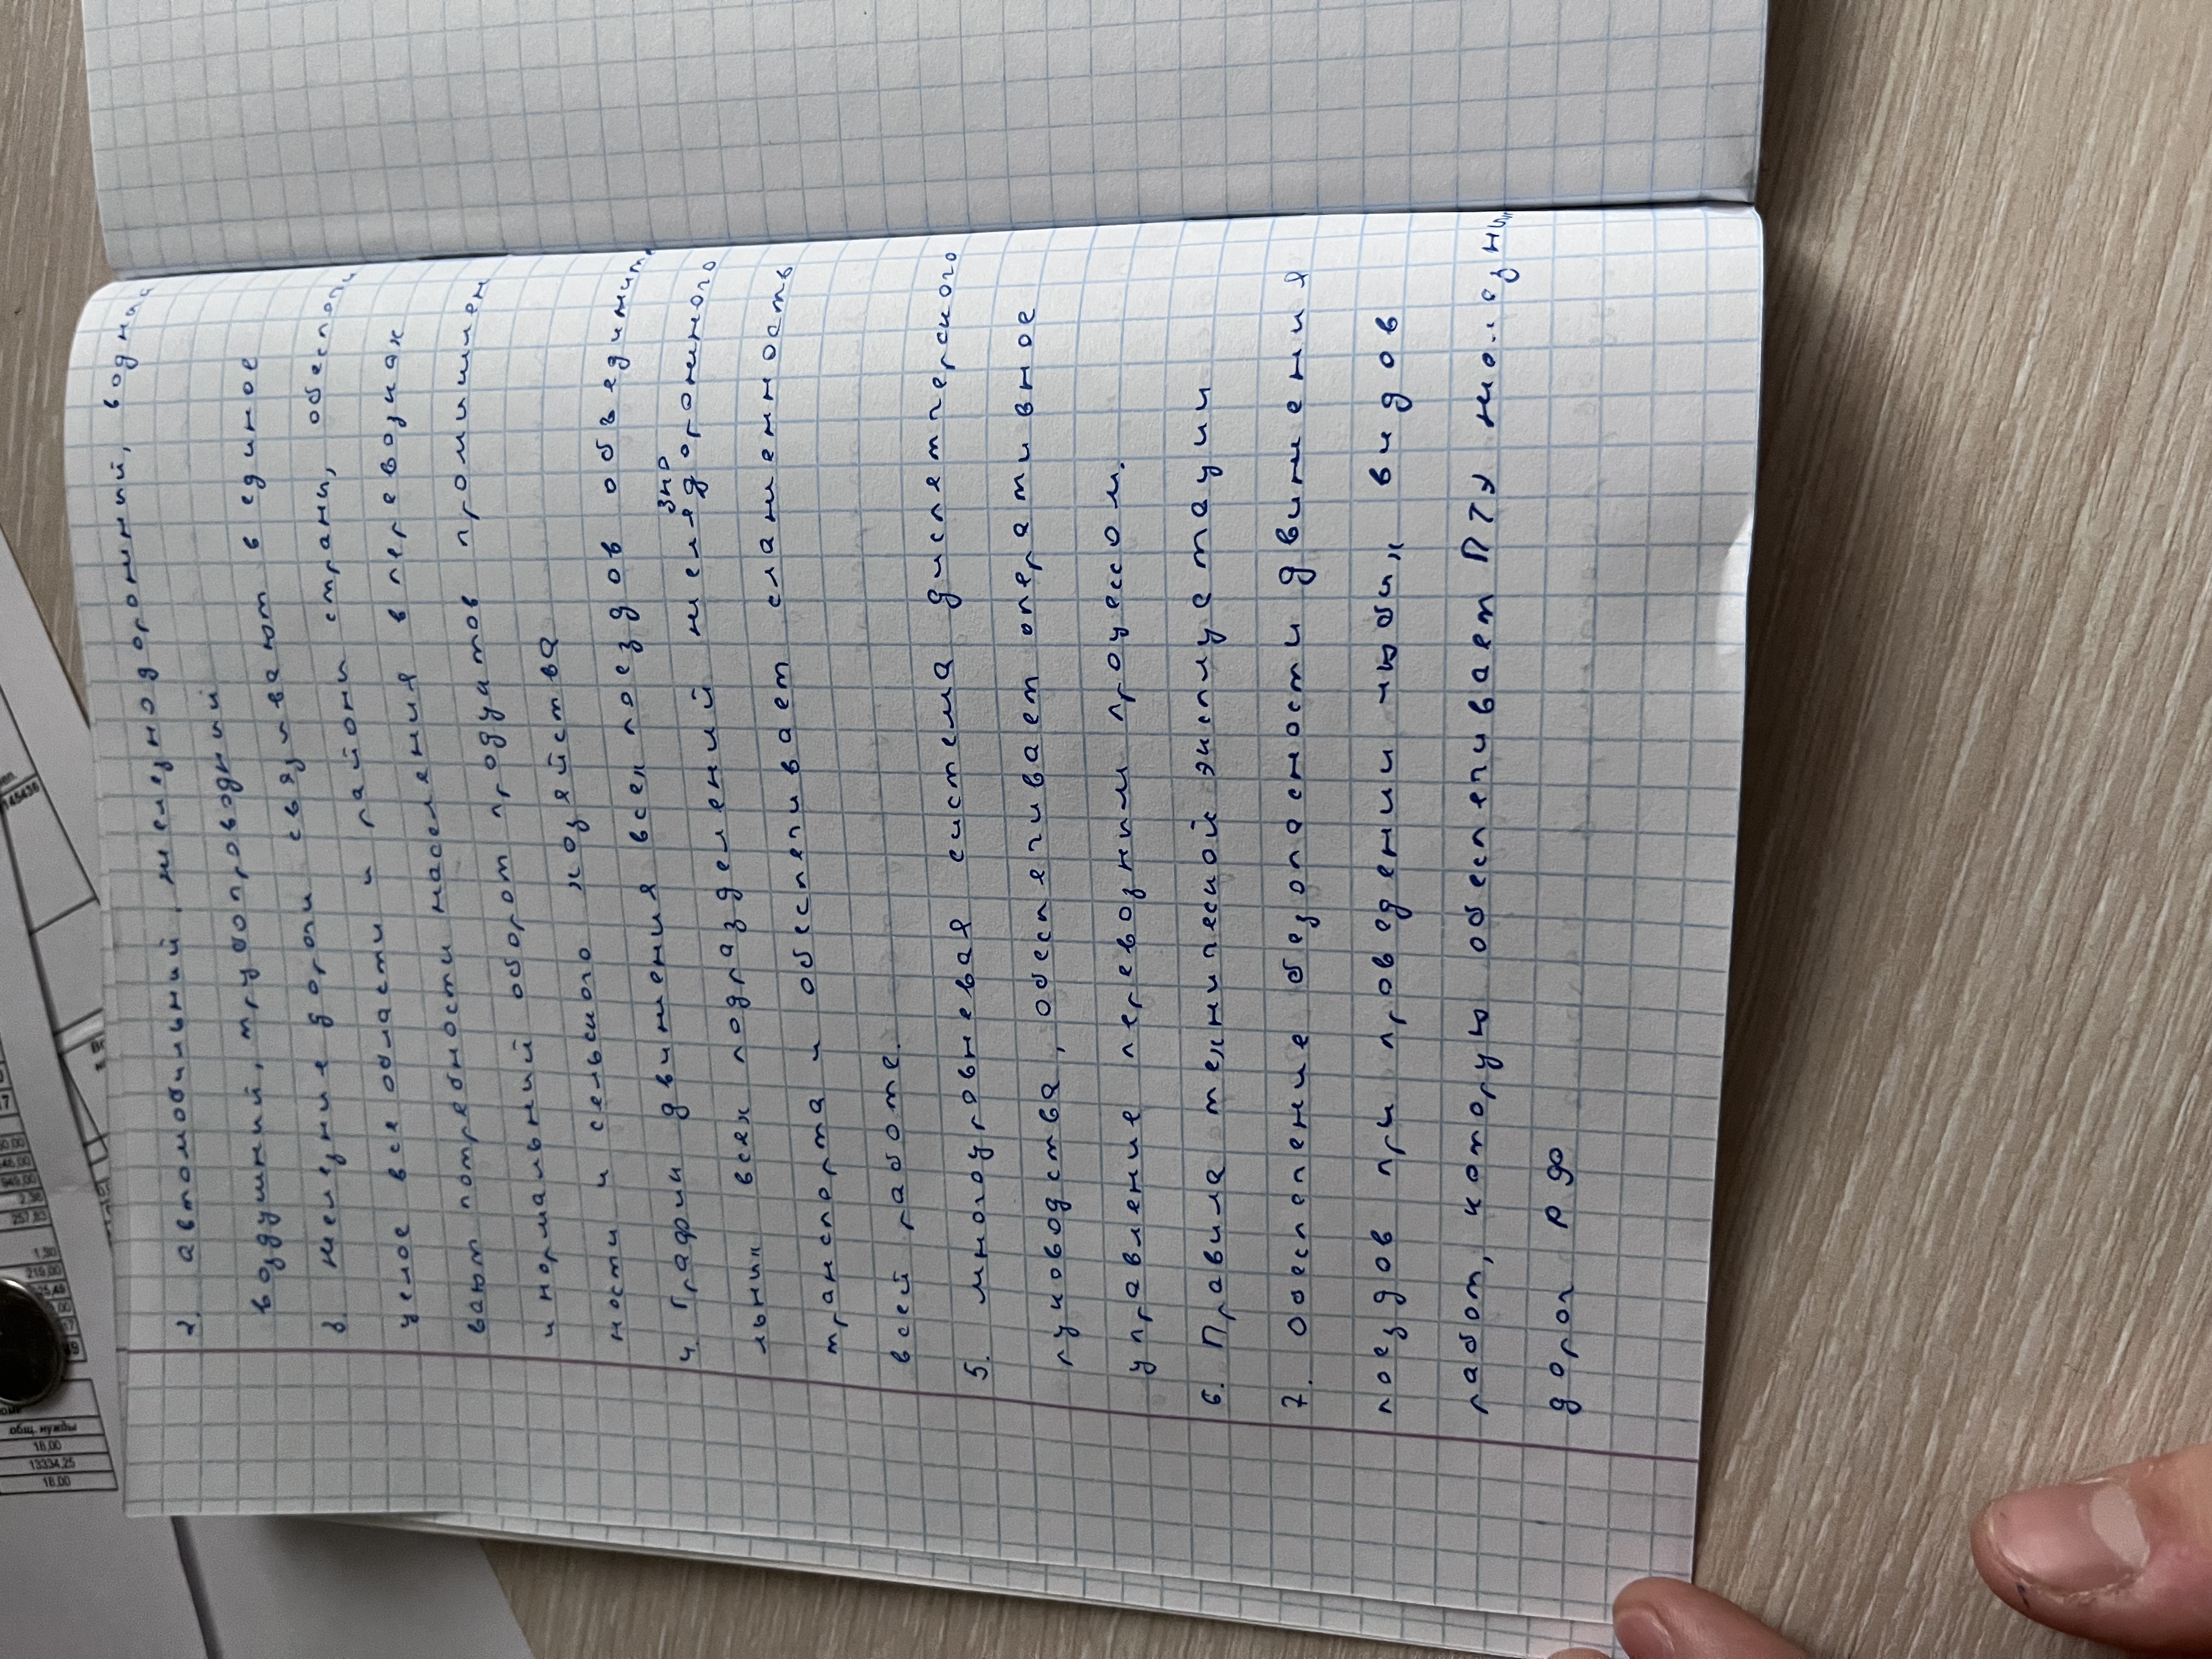 2. автомобильный, железнодорожный, водный
воздушний, трубопроводный
3. железние дороги связывают в единое
целое все области и районы страны, обеспечи
вают потребности населения в перевозках
и нормальный оборот продуктов промышлен
ности и сельского хозяйства
4. График движения всех поездов объедини
льник всех подразделений железнодорожного
транспорта и обеспечивает слаженность
всей работе.
5. многоуровневая система диспетчерского
руководства, обеспечивает оперативное
управление перевозным процессом.
6. Правила технической эксплуатации
7. Обеспечение безопасности движения
поездов при проведении любых видов
работ, которую обеспечивает ПТЭ
дорог РФ
145436
257,83
1,30
219,00
общ. нужды
18,00
13334,25
18,00